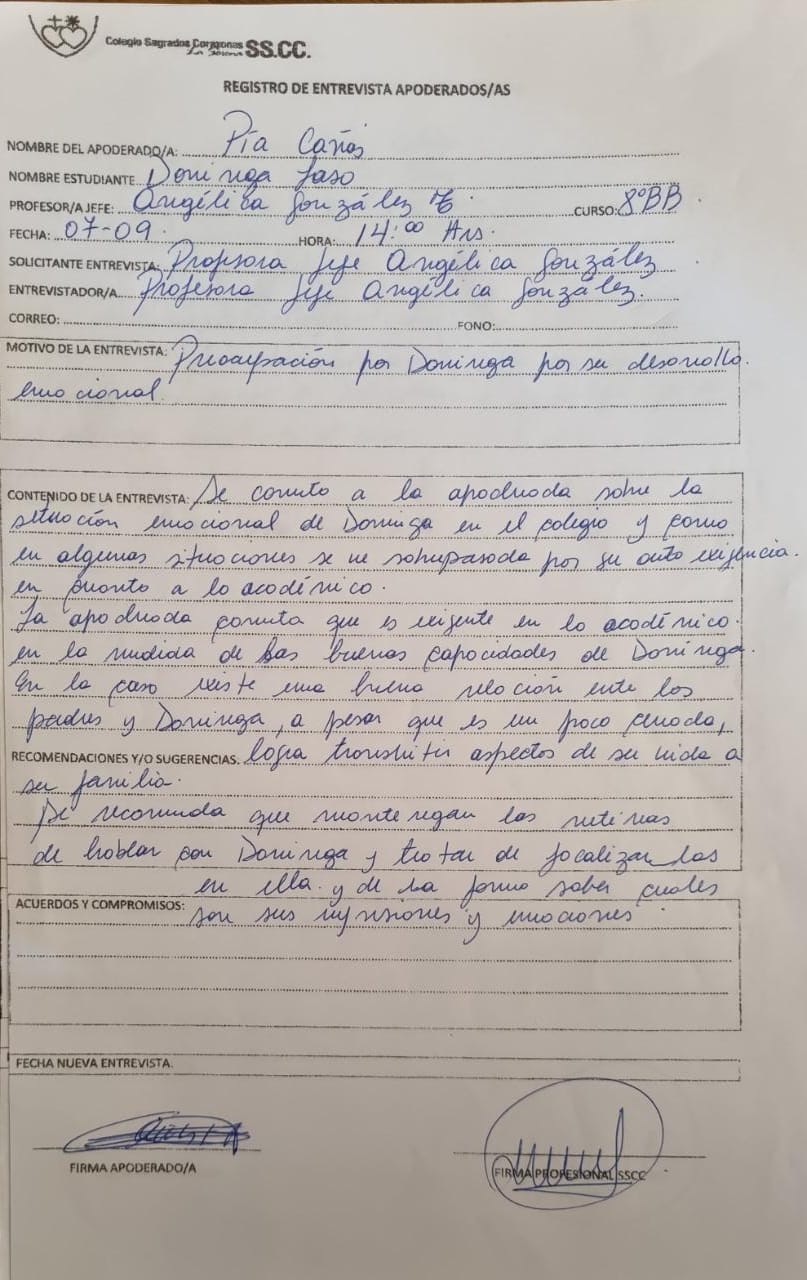 Colegio Sagrados Corazones SS.CC.
La Serena
REGISTRO DE ENTREVISTA APODERADOS/AS
NOMBRE DEL APODERADO/A: Pía Cañas
NOMBRE ESTUDIANTE Dominga Jaso
PROFESOR/A JEFE: Angélica González CURSO: 8°BB
FECHA: 07-09 HORA: 14:00 Hrs.
SOLICITANTE ENTREVISTA: Profesora Jefe Angélica González
ENTREVISTADOR/A Profesora Jefe Angélica González.
CORREO: FONO:
MOTIVO DE LA ENTREVISTA: Preocupación por Dominga por su desarrollo
emocional
CONTENIDO DE LA ENTREVISTA: Se comenta a la apoderada sobre la
situación emocional de Dominga en el colegio y como
en algunas situaciones se ve sobrepasada por su auto exigencia.
en cuanto a lo académico.
La apoderada comenta que es exigente en lo académico.
en la medida de las buenas capacidades de Dominga.
En la casa existe una buena relación entre los
padres y Dominga, a pesar que es un poco cerrada,
RECOMENDACIONES Y/O SUGERENCIAS. logra transmitir aspectos de su vida a
su familia.
Se recomienda que mantengan las rutinas
de hablar con Dominga y tratar de focalizarlas
en ella. y de la forma saber cuales
ACUERDOS Y COMPROMISOS: son sus impresiones y emociones
FECHA NUEVA ENTREVISTA.
FIRMA APODERADO/A FIRMA PROFESIONAL SSCC